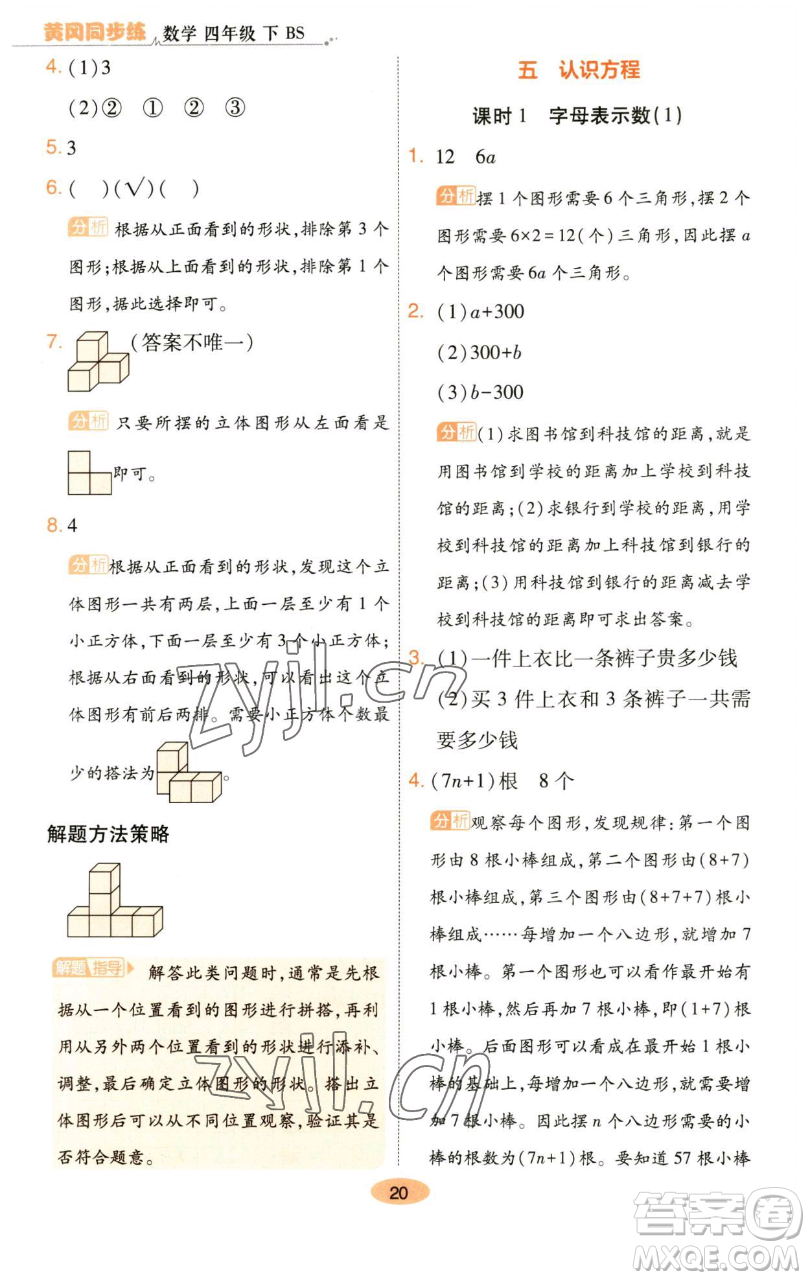 黄冈同步练 数学 四年级 下 BS
4. (1)3
(2)② ① ② ③
5. 3
6. ( )(√)( )
分析 根据从正面看到的形状,排除第 3 个
图形;根据从上面看到的形状,排除第 1 个
图形,据此选择即可。
7. (答案不唯一)
分析 只要所摆的立体图形从左面看是
即可。
8. 4
分析 根据从正面看到的形状,发现这个立
体图形一共有两层,上面一层至少有 1 个
小正方体,下面一层至少有 3 个小正方体;
根据从右面看到的形状,可以看出这个立
体图形有前后两排。需要小正方体个数最
少的搭法为 。
解题方法策略
解题 指导 解答此类问题时,通常是先根
据从一个位置看到的图形进行拼搭,再利
用从另外两个位置看到的形状进行添补、
调整,最后确定立体图形的形状。搭出立
体图形后可以从不同位置观察,验证其是
否符合题意。
五 认识方程
课时 1 字母表示数(1)
1. 12 6a
分析 摆 1 个图形需要 6 个三角形,摆 2 个
图形需要 6×2=12(个)三角形,因此摆 a
个图形需要 6a 个三角形。
2. (1)a+300
(2)300+b
(3)b-300
分析 (1)求图书馆到科技馆的距离,就是
用图书馆到学校的距离加上学校到科技
馆的距离;(2)求银行到学校的距离,用学
校到科技馆的距离加上科技馆到银行的
距离;(3)用科技馆到银行的距离减去学
校到科技馆的距离即可求出答案。
3. (1)一件上衣比一条裤子贵多少钱
(2)买 3 件上衣和 3 条裤子一共需
要多少钱
4. (7n+1)根 8 个
分析 观察每个图形,发现规律:第一个图
形由 8 根小棒组成,第二个图形由(8+7)
根小棒组成,第三个图形由(8+7+7)根小
棒组成……每增加一个八边形,就增加 7
根小棒。第一个图形也可以看作最开始有
1 根小棒,然后加 7 根小棒,即(1+7)根
小棒。后面图形可以看作在最开始 1 根小
棒的基础上,每增加一个八边形,就增
加 7 根小棒。因此摆 n 个八边形需要的小
棒的根数为(7n+1)根。要知道 57 根小棒
20
zyjl.cn
zyjl.cn
答案卷
MXQE.COM